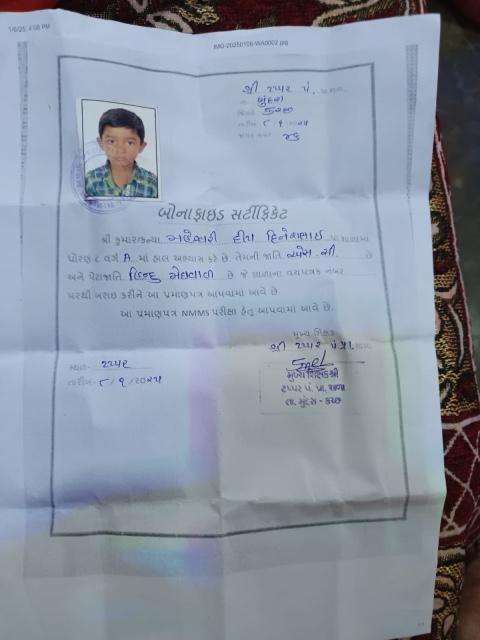 1/8/25, 4:08 PM
IMG-20250108-WA0002.jpg
શ્રી ટપ્પર પં. પ્રા. શાળા
તા. મુંદરા
જિલ્લો કચ્છ
તારીખ: ૮/૧/૨૦૨૫
જાવક નંબર
બોનાફાઇડ સર્ટીફિકેટ
શ્રી કુમાર/કન્યા મહેશ્વરી દીપ દિનેશભાઈ પ્રા.શાળામાં
ધોરણ-૮ વર્ગ A માં હાલ અભ્યાસ કરે છે. તેમની જાતિ એસ.સી. છે
અને પેટાજાતિ હિન્દુ મેઘવાળ છે જે શાળાના વયપત્રક નંબર
પરથી ખરાઇ કરીને આ પ્રમાણપત્ર આપવામાં આવે છે.
આ પ્રમાણપત્ર NMMS પરીક્ષા હેતુ આપવામાં આવે છે.
મુખ્ય શિક્ષક
શ્રી ટપ્પર પં.પ્રા. શાળા
સ્થળ:- ટપ્પર
તારીખ:- ૮/૧/૨૦૨૫
મુખ્ય શિક્ષકશ્રી
ટપ્પર પં. પ્રા. શાળા
તા. મુંદરા - કચ્છ
1/1